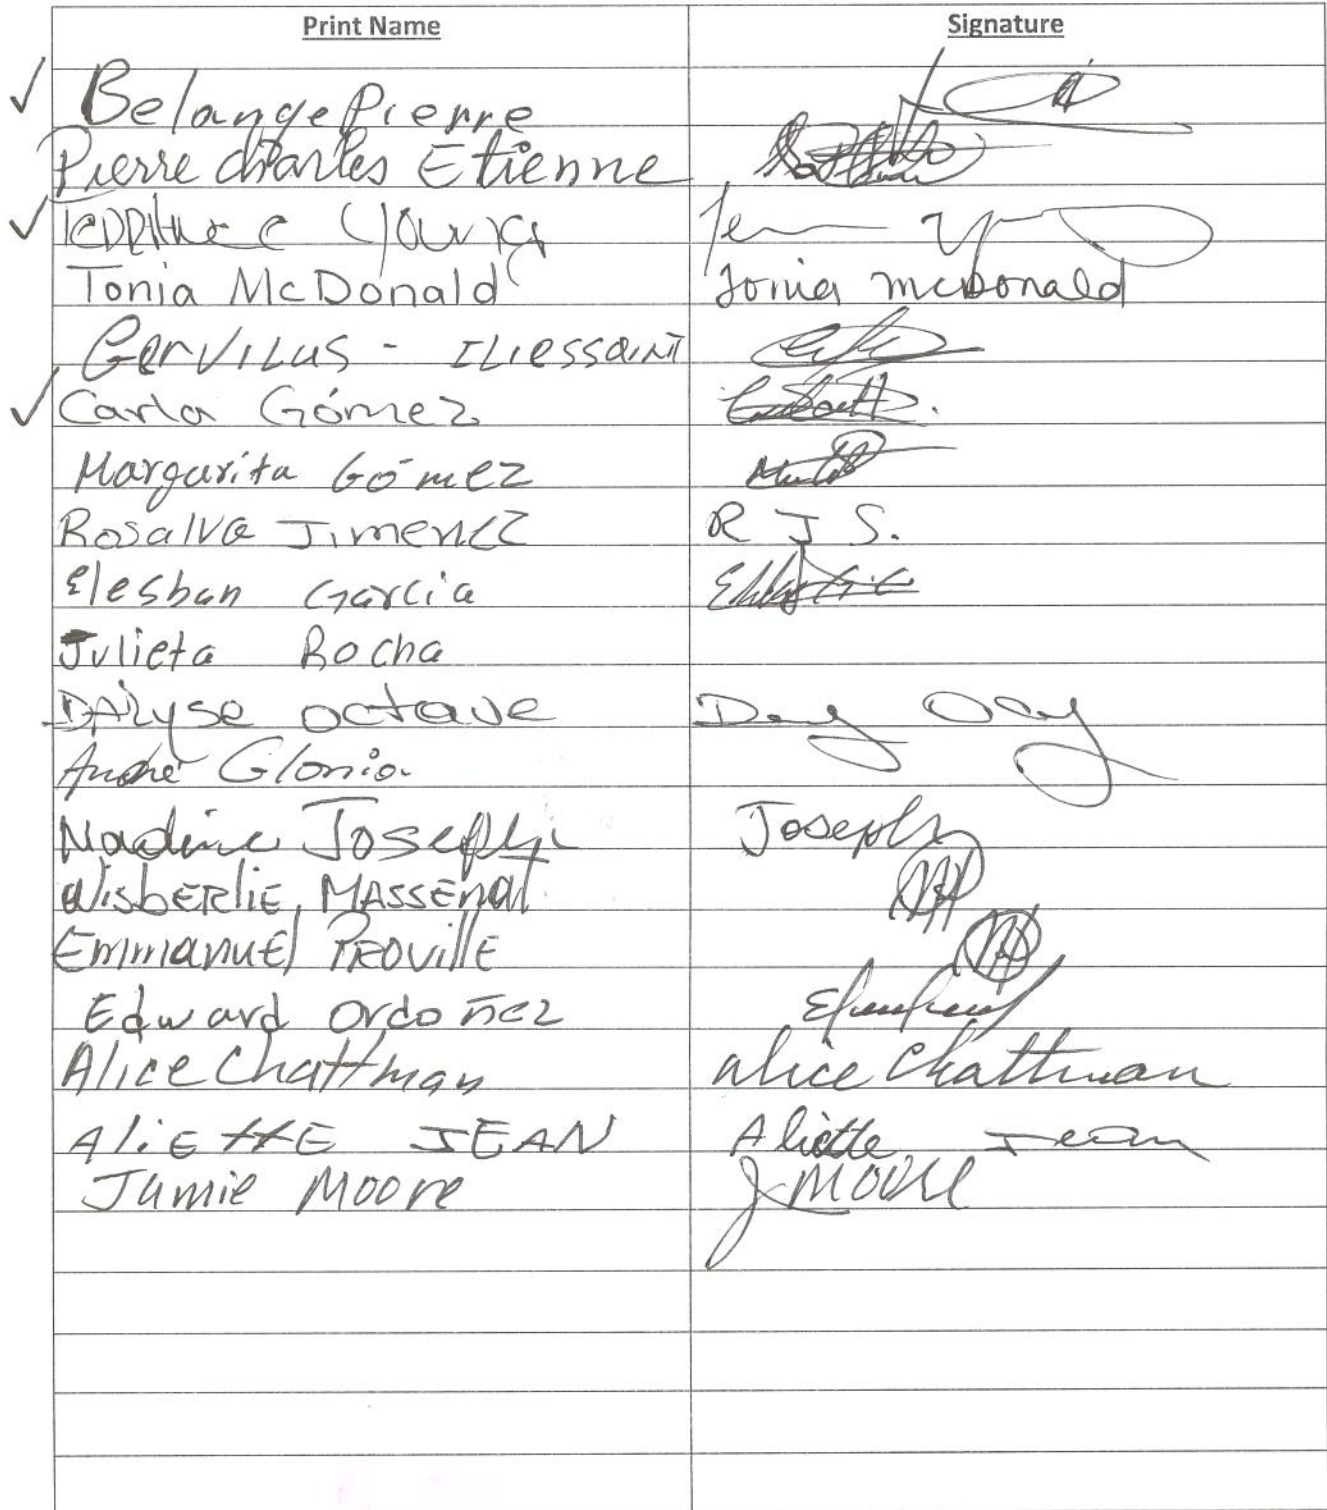 Print Name Signature
Belange Pierre
Pierre charles Etienne
Terrance Young
Tonia McDonald Tonia mcDonald
Gervilus - Iliessaint
Carla Gómez
Margarita Gómez
Rosalva Jimenez R J S.
Elesban Garcia
Julieta Rocha
DAilyse octave
André Gloria
Nadine Joseph Joseph
WisbERliE MASSEnat
EmmanuEl PROvillE
Edward Ordoñez
Alice Chattman alice Chattman
AliEttE JEAN Aliette Jean
Jamie Moore J Moore